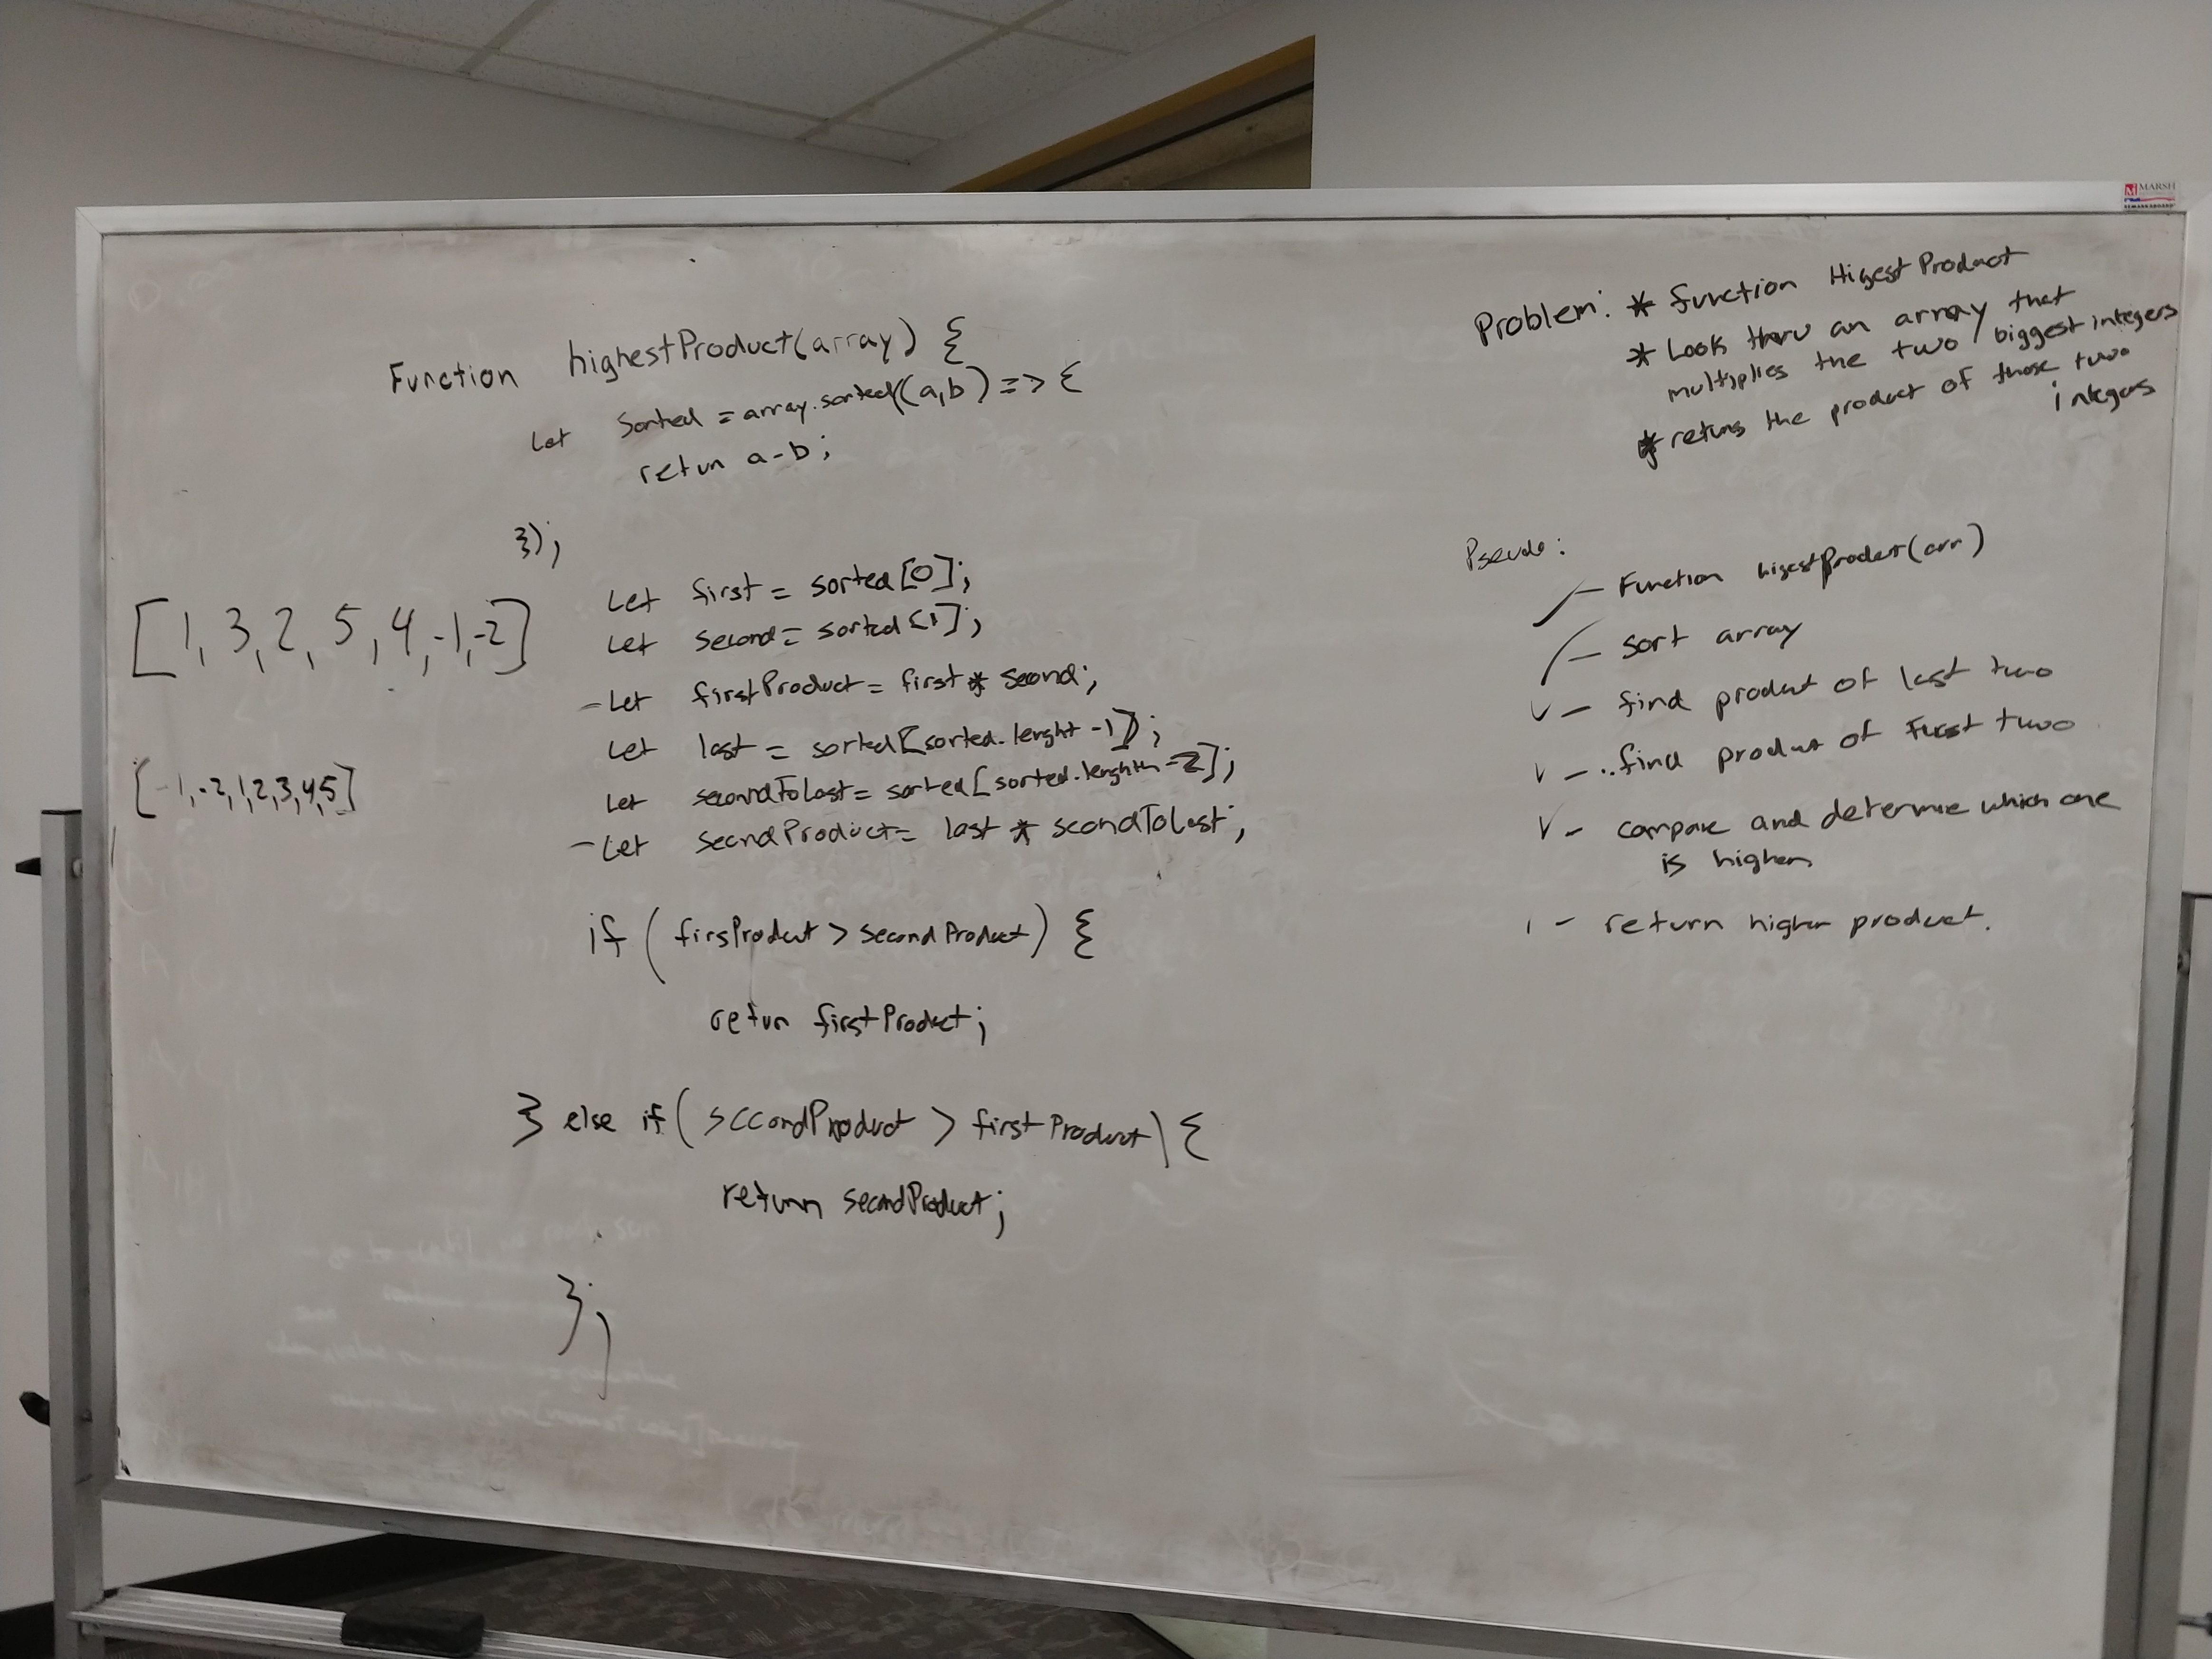 MARSH
Function highestProduct(array) {
Let Sorted = array.sorted((a,b) => {
retun a-b;
});
Let first = sorted[0];
Let second = sorted[1];
- Let firstProduct = first * second;
Let last = sorted[sorted.lenght -1];
Let secondToLast = sorted[sorted.lenghth -2];
- Let secndProduct = last * scondToLast;
if (firsProduct > secondProduct) {
retun firstProduct;
} else if (secondProduct > firstProduct) {
return secondProduct;
};
[1, 3, 2, 5, 4, -1, -2]
[-1, -2, 1, 2, 3, 4, 5]
Problem: * function HigestProduct
* Look thru an array that
multiplies the two / biggest integers
* retuns the product of those two
integers
Pseudo:
- Function higestProduct(arr)
- sort array
- find product of last two
- find product of first two
- compare and determine which one
is higher
- return higher product.